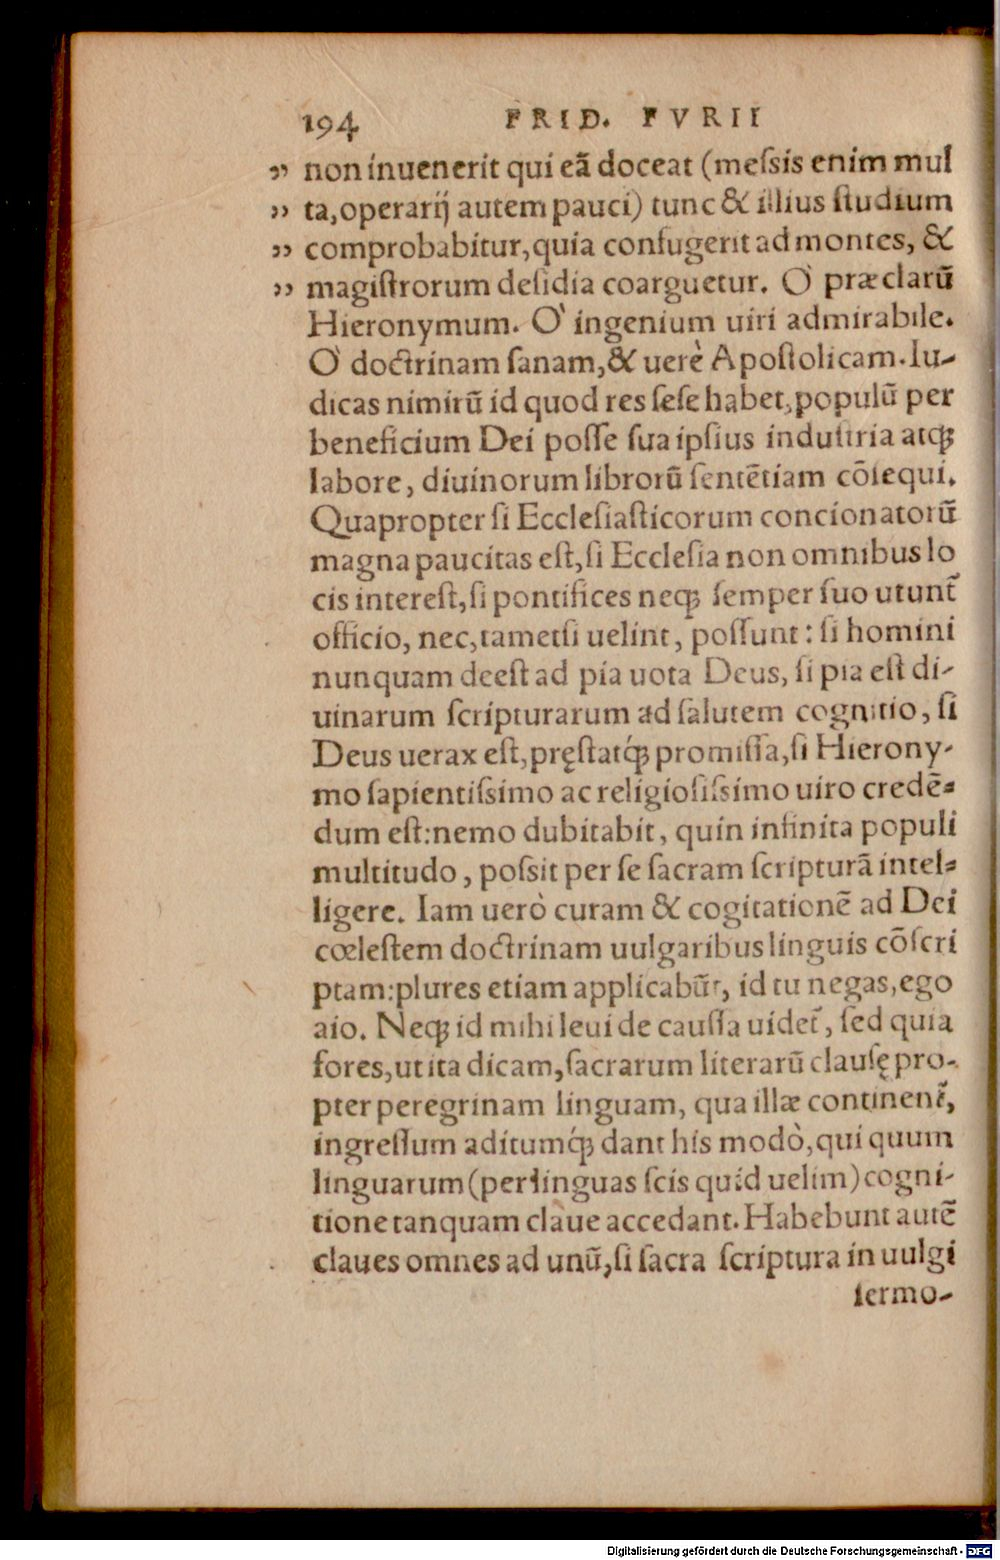 194 FRID. FVRII
„ non inuenerit qui eã doceat (meſsis enim mul
„ ta, operarij autem pauci) tunc & illius ſtudium
„ comprobabitur, quia confugerit ad montes, &
„ magiſtrorum deſidia coarguetur. O` præclarũ
Hieronymum. O` ingenium uiri admirabile.
O` doctrinam ſanam, & uerè Apoſtolicam. Iu-
dicas nimirũ id quod res ſeſe habet, populũ per
beneficium Dei poſſe ſua ipſius induſtria atqꝫ
labore, diuinorum librorũ ſentẽtiam cõſequi.
Quapropter ſi Eccleſiaſticorum concionatorũ
magna paucitas eſt, ſi Eccleſia non omnibus lo
cis intereſt, ſi pontifices neqꝫ ſemper ſuo utunt᷑
officio, nec, tametſi uelint, poſſunt: ſi homini
nunquam deeſt ad pia uota Deus, ſi pia eſt di-
uinarum ſcripturarum ad ſalutem cognitio, ſi
Deus uerax eſt, pręſtatq́ꝫ promiſſa, ſi Hierony-
mo ſapientiſsimo ac religioſiſsimo uiro credẽ-
dum eſt: nemo dubitabit, quin infinita populi
multitudo, poſsit per ſe ſacram ſcripturã intel-
ligere. Iam uerò curam & cogitationẽ ad Dei
cœleſtem doctrinam uulgaribus linguis cõſcri
ptam: plures etiam applicabũt, id tu negas, ego
aio. Neqꝫ id mihi leui de cauſſa uidet᷑, ſed quia
fores, ut ita dicam, ſacrarum literarũ clauſę pro-
pter peregrinam linguam, qua illæ continent᷑,
ingreſſum aditumq́ꝫ dant his modò, qui quum
linguarum (per linguas ſcis quid uelim) cogni-
tione tanquam claue accedant. Habebunt autẽ
claues omnes ad unũ, ſi ſacra ſcriptura in uulgi
ſermo-
Digitalisierung gefördert durch die Deutsche Forschungsgemeinschaft - DFG